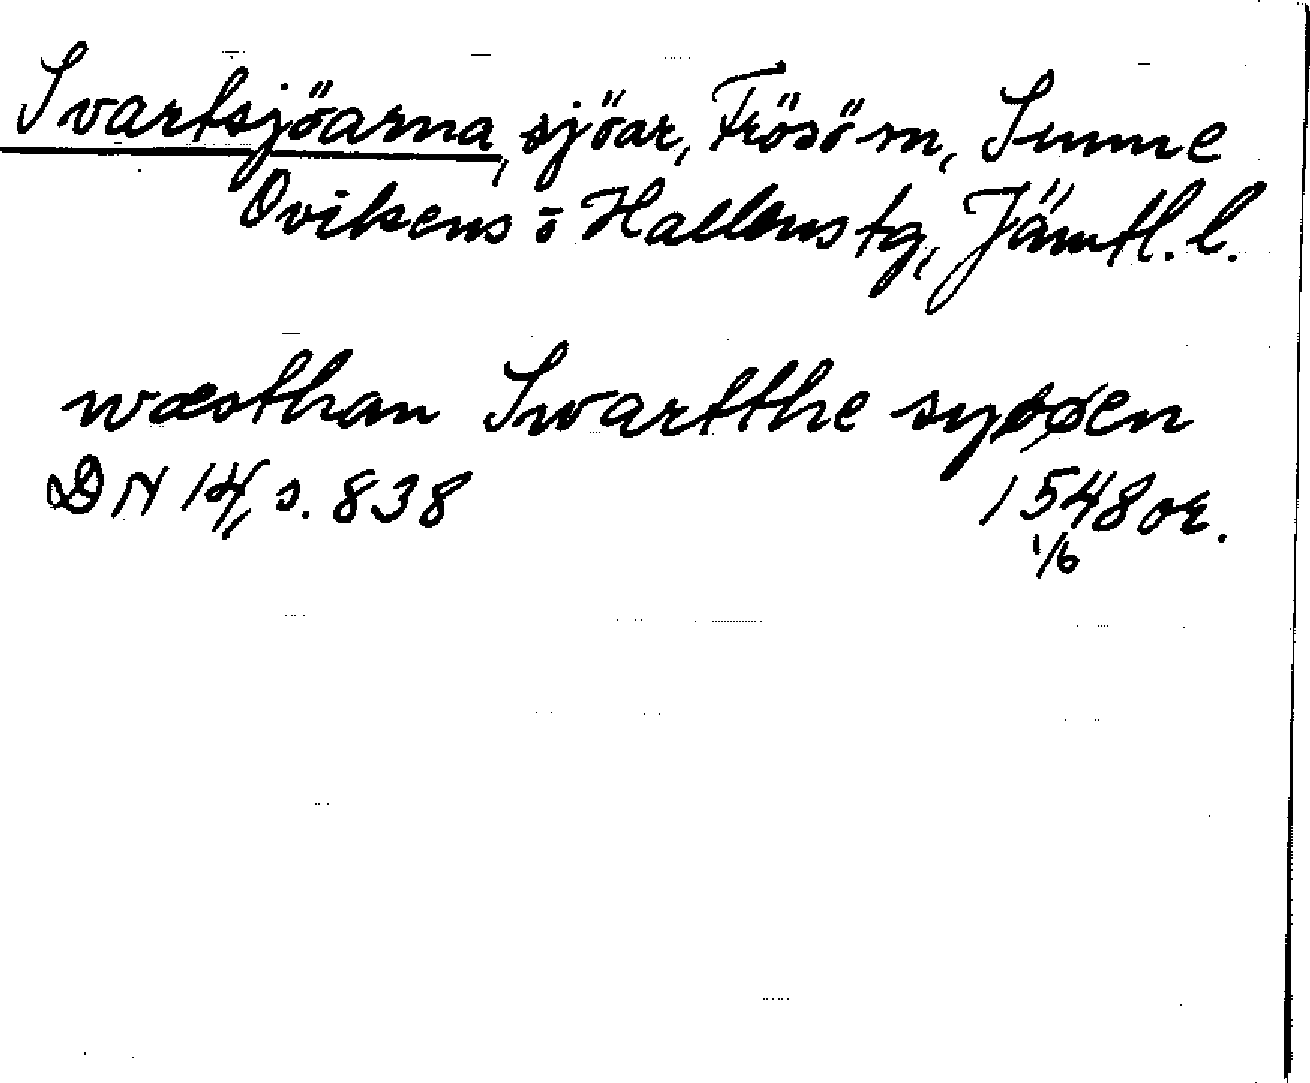 Svartsjöarna, sjöar, Frösö sn, Sunne
Ovikens o Hallens tg, Jämtl. l.
wæsthan Swartthe syøøen
DN 14, s. 838 1548 or.
1/6